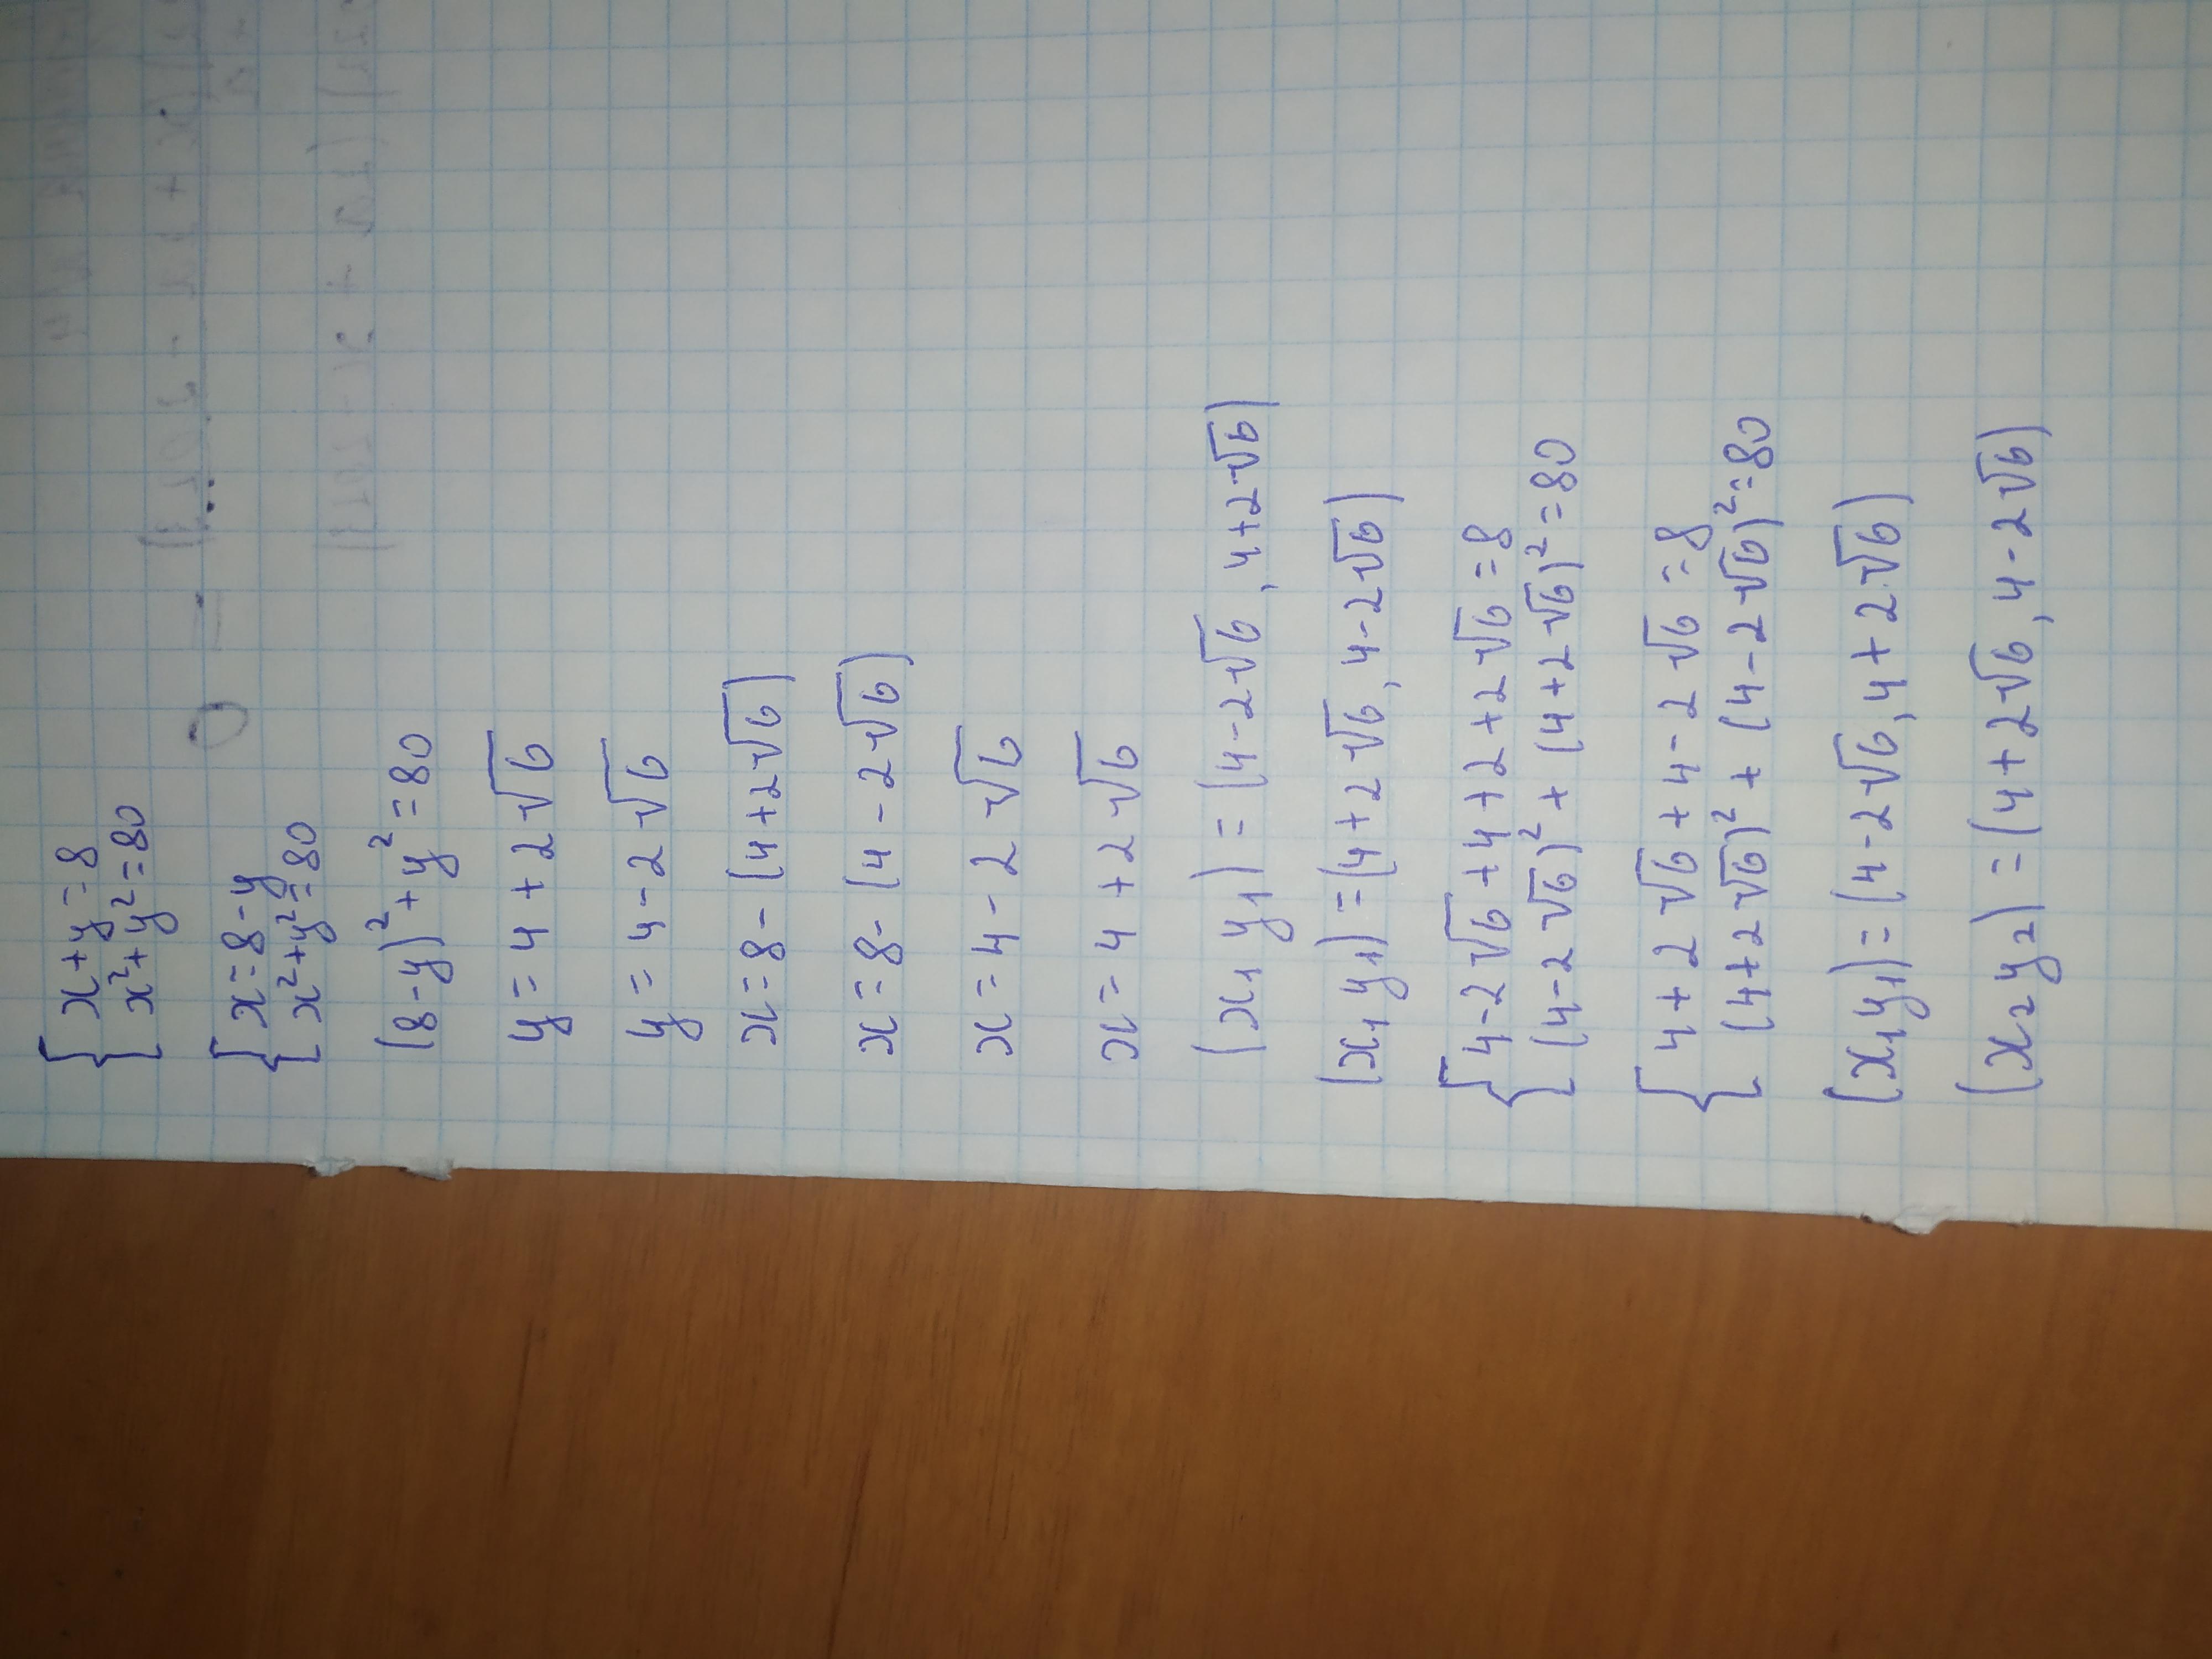 { x+y=8
x²+y²=80
{ x=8-y
x²+y²=80
(8-y)²+y²=80
y=4+2√6
y=4-2√6
x=8-(4+2√6)
x=8-(4-2√6)
x=4-2√6
x=4+2√6
(x₁ y₁)=(4-2√6, 4+2√6)
(x₁ y₁)=(4+2√6, 4-2√6)
{ 4-2√6+4+2+2√6=8
(4-2√6)²+(4+2√6)²=80
{ 4+2√6+4-2√6=8
(4+2√6)²+(4-2√6)²=80
(x₁y₁)=(4-2√6, 4+2√6)
(x₂y₂)=(4+2√6, 4-2√6)